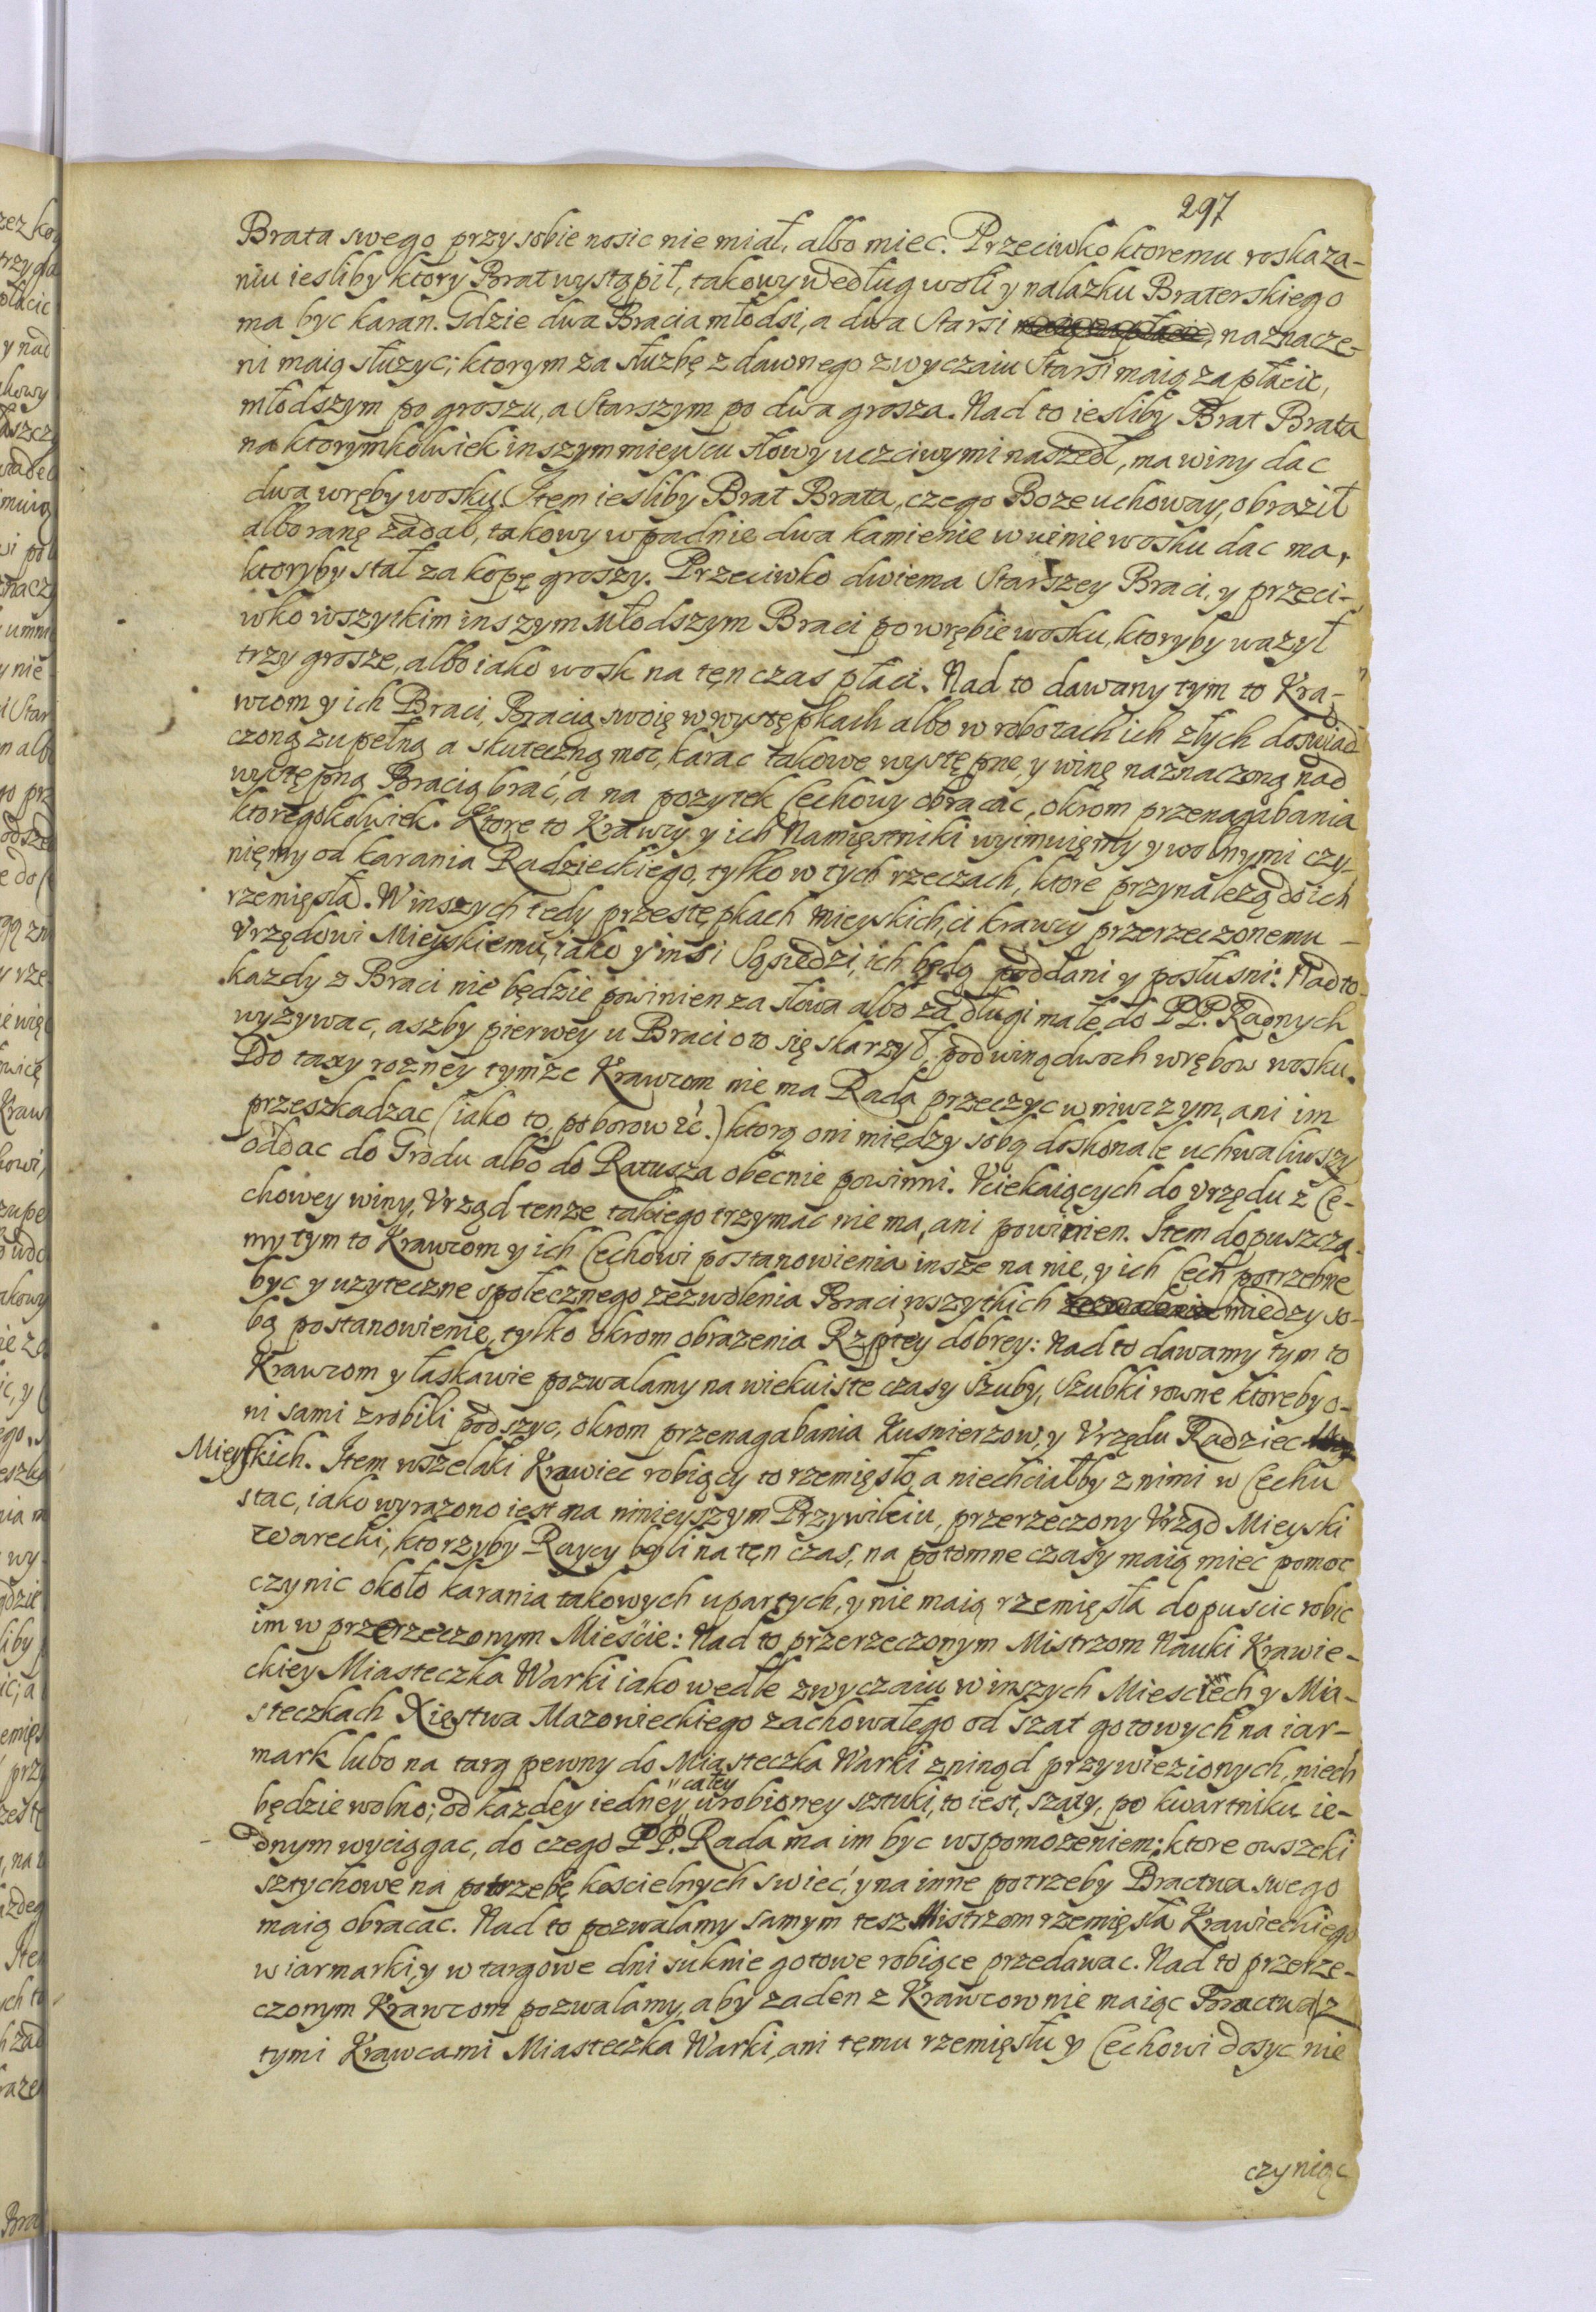 297
Brata swego przy sobie nosic nie miał, albo miec. Przeciwko ktoremu roskaza-
niu iesliby ktory Brat wystąpił, takowy według woli y nalazku Braterskiego
ma byc karan. Gdzie dwa Bracia młodsi, a dwa Starsi naznacze-
ni maią słuzyc; ktorym za słuzbę z dawnego zwyczaiu Starsi maią zapłacic,
młodszym po groszu, a Starszym po dwa grosza. Nad to iesliby Brat Brata
na ktorymkolwiek inszym mieyscu słowy uczciwymi naszedł, ma winy dac
dwa wręby wosku. Item iesliby Brat Brata, czego Boze uchoway, obraził
albo ranę zadał, takowy wpadnie dwa kamienie w winie wosku dac ma,
ktoryby stał za kopę groszy. Przeciwko dwiema Starszey Braci, y przeci-
wko wszytkim inszym Młodszym Braci po wrębie wosku, ktoryby wazył
trzy grosze, albo iako wosk na tęn czas płaci. Nad to dawany tym to Kra-
wcom y ich Braci, Bracią swoię w występkach albo w robotach ich złych doswiad
czoną zupełną a skuteczną moc, karac takowe występne, y winę naznaczoną nad
występną Bracią brać, a na pozytek Cechowy obracac, okrom przenagabania
ktoregokolwiek. Ktore to Krawcy y ich Namięstniki wyimuięmy y wolnymi czy-
nięmy od karania Radzieckiego, tylko w tych rzeczach, ktore przynalezą do ich
rzemięsła. W inszych tedy przestępkach mieyskich, ci krawcy przerzeczonemu
Vrzędowi Mieyskiemu, iako y insi Sąsiedzi, ich będą poddani y posłusni: Nad to
kazdy z Braci nie będzie powinien za słowa albo za długi małe do PP. Radnych
wyzywac, aszby pierwey u Braci o to się skarzył, pod winą dwoch wrębow wosku.
Do taxy rozney tymze Krawcom nie ma Rada przeczyc w niwczym, ani im
przeszkadzac (iako to, poborow &c.) ktorą oni między sobą doskonale uchwaliwszy
oddac do Grodu albo do Ratusza obecnie powinni. Vciekaiących do Vrzędu z Ce-
chowey winy, Vrząd tenze takiego trzymac nie ma, ani powinien. Item dopuszcza
my tym to Krawcom y ich Cechowi postanowienia insze na nie, y ich Cech potrzebne
byc y uzyteczne społecznego zezwolenia Braci wszytkich miedzy so-
bą postanowienie, tylko okrom obrazenia Rzptey dobrey: Nad to dawamy tym to
Krawcom y łaskawie pozwalamy na wiekuiste czasy Szuby, Szubki rowne ktoreby o-
ni sami zrobili podszyc, okrom przenagabania Kusnierzow, y Vrzędu Radziec
Mieyskich. Item wszelaki Krawiec robiący to rzemięsło, a niechciałby z nimi w Cechu
stac, iako wyrazono iest na ninieyszym Przywileiu, przerzeczony Vrząd Mieyski
Warecki, ktorzyby Raycy byli na tęn czas, na potomne czasy maią miec pomoc
czynic około karania takowych upartych, y nie maią rzemięsła dopuscic robic
im w przerzeczonym Mieście: Nad to przerzeczonym Mistrzom Nauki Krawie-
ckiey Miasteczka Warki iako wedle zwyczaiu w inszych Miesciech y Mia-
steczkach Xięstwa Mazowieckiego zachowałego od szat gotowych na iar-
mark lubo na targ pewny do Miasteczka Warki zninąd przywiezionych, niech
całey
będzie wolno; od kazdey iedney urobioney sztuki, to iest, szaty, po kwartniku ie-
dnym wyciągac, do czego PP. Rada ma im byc wspomozeniem; ktore owszeki
sztychowe na potrzebę koscielnych swieć, y na inne potrzeby Bractwa swego
maią obracac. Nad to pozwalamy samym tesz Mistrzom rzemięsła Krawieckiego
w iarmarki, y w targowe dni suknie gotowe robiące przedawac. Nad to przerze-
czonym Krawcom pozwalamy, aby zaden z Krawcow nie maiąc Bractwa z
tymi Krawcami Miasteczka Warki, ani tęmu rzemięsłu y Cechowi dosyc nie
czyniąc